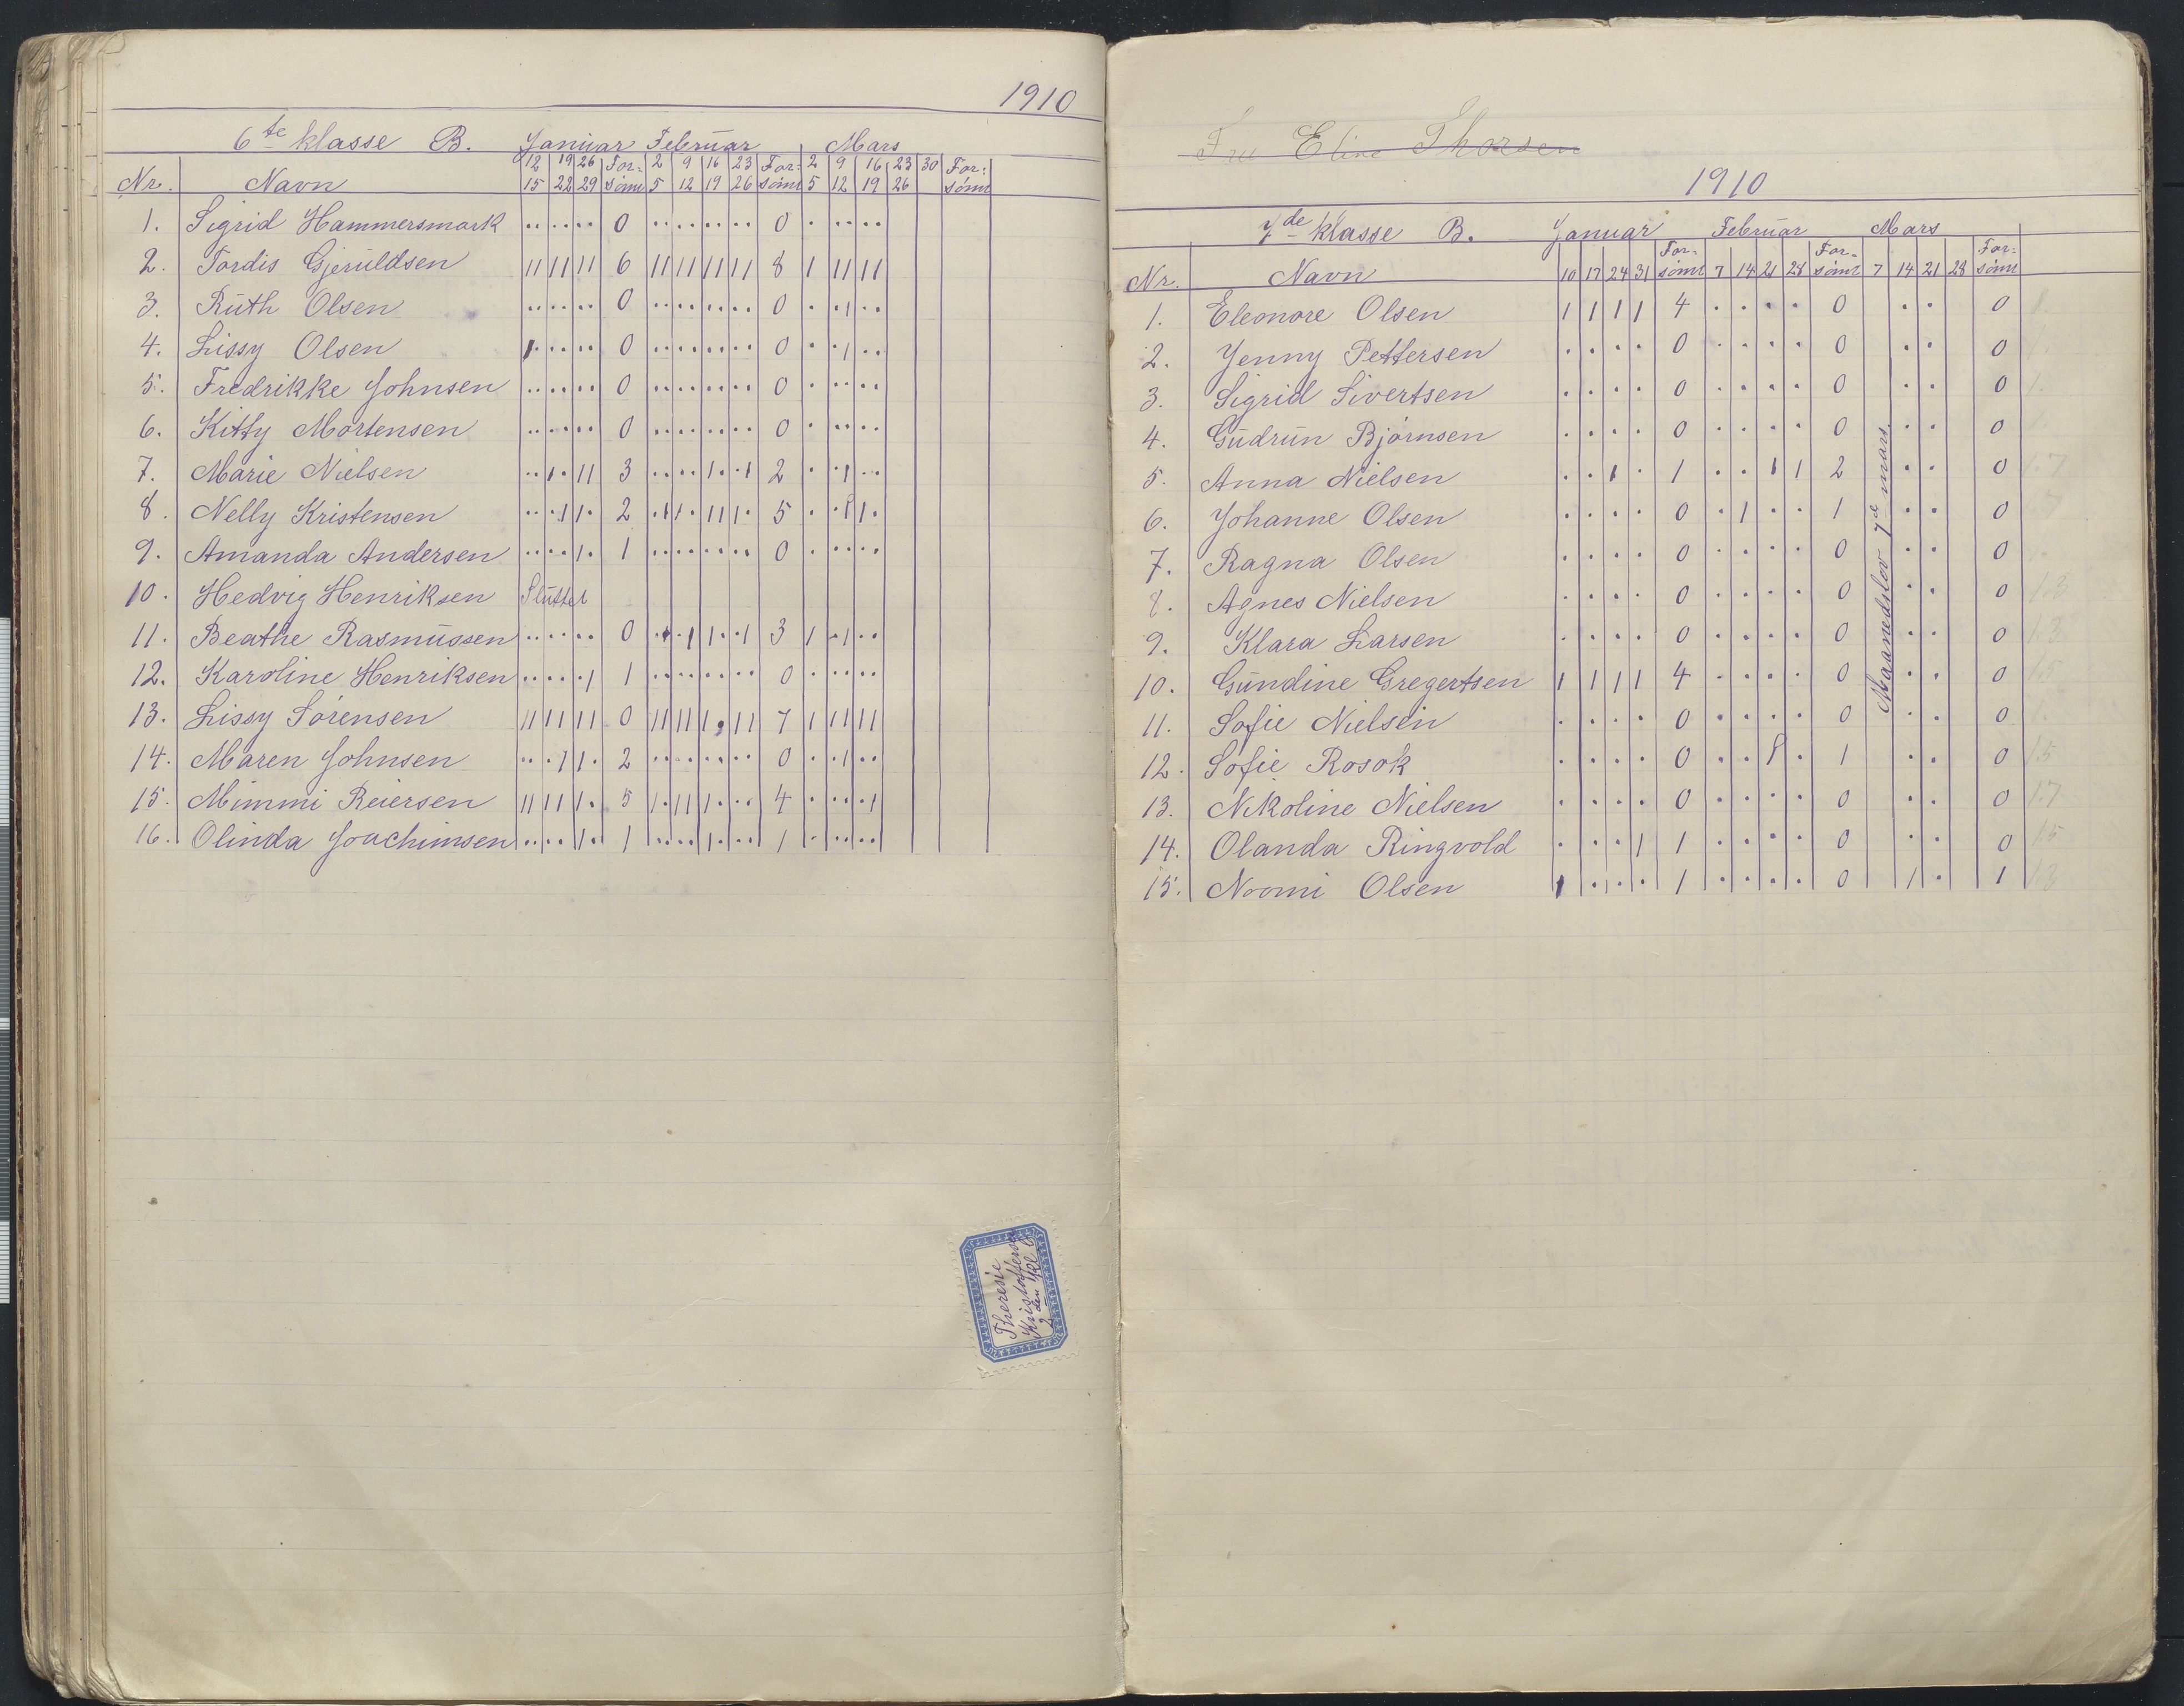 1910
6te klasse B. Januar Februar Mars
12 19 26 For- 2 9 16 23 For: 2 9 16 23 30 For:
Nr. Navn 15 22 29 sömt 5 12 19 26 sömt 5 12 19 26 sömt
1. Sigrid Hammersmark ...... 0 ........ 0 . ....
2. Tordis Gjeruldsen 11 11 11 6 11 11 11 11 8 1 11 11
3. Ruth Olsen ...... 0 ........ 0 . .1 ..
4. Lissy Olsen 1..... 0 ........ 0 . .1 ..
5. Fredrikke Johnsen ...... 0 ........ 0 . ....
6. Kitty Mortensen ...... 0 ........ 0 . ....
7. Marie Nielsen .. 1. 11 3 .. .. 1. .1 2 . .1 ..
8. Nelly Kristensen .. .1 1. 2 .1 1. 11 1. 5 . .1 1.
9. Amanda Andersen .. .. 1. 1 ........ 0 . ....
10. Hedvig Henriksen Sluttet
11. Beathe Rasmussen ...... 0 .1 .1 1. .1 3 1 .1 ..
12. Karoline Henriksen .. .. .1 1 ........ 0 . ....
13. Lissy Sörensen 11 11 11 0 11 11 1. 11 7 1 11 11
14. Maren Johnsen .. .1 1. 2 ........ 0 . .1 ..
15. Mimmi Reiersen 11 11 1. 5 1. 11 1. .. 4 . .. .1
16. Olinda Joachimsen .. .. 1. 1 .. .. 1. .. 1 . ....
Theresie
Kristoffersen
2den Kl
Fru Eline Thorsen
1910
7de klasse B. Januar Februar Mars
For- For- For:
Nr. Navn 10 17 24 31 sömt 7 14 21 28 sömt 7 14 21 28 sömt
1. Eleonore Olsen 1 1 1 1 4 . . . . 0 . . 0
2. Jenny Pettersen . . . . 0 . . . . 0 . . 0
3. Sigrid Sivertsen . . . . 0 . . . . 0 . . 0
4. Gudrun Bjørnsen . . . . 0 . . . . 0 . . 0
5. Anna Nielsen . . 1 . 1 . . 1 1 2 . . 0 1.7
6. Johanne Olsen . . . . 0 . 1 . . 1 . . 0
7. Ragna Olsen . . . . 0 . . . . 0 . . 0
8. Agnes Nielsen . . . . 0 . . . . 0 . . 0 1.3
9. Klara Larsen . . . . 0 . . . . 0 . . 0 1.3
10. Gundine Gregertsen 1 1 1 1 4 . . . . 0 . . 0 1.5
11. Sofie Nielsen . . . . 0 . . . . 0 . . 0
12. Sofie Rosok . . . . 0 . . 1 . 1 . . 0 1.5
13. Nikoline Nielsen . . . . 0 . . . . 0 . . 0 1.7
14. Olanda Ringvold . . . 1 1 . . . . 0 . . 0 1.5
15. Noomi Olsen 1 . . . 1 . . . . 0 1 . 1 1.3
Maanedslov 7de mars.